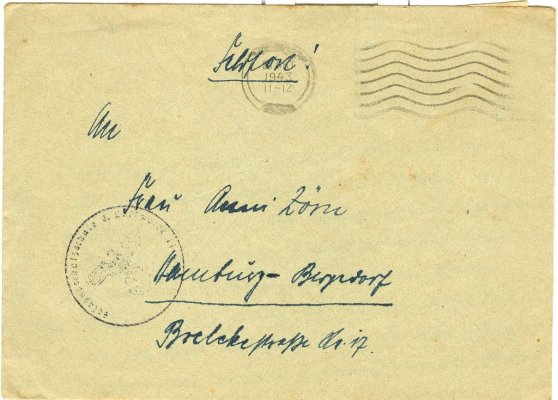 Feldpost!
1943
11-12
An
Frau Anni Zörn
Hamburg-Bergedorf
Boelckestraße 17.